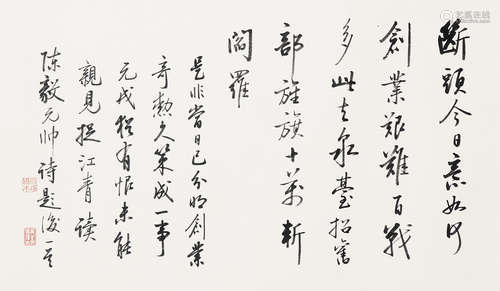 斷頭今日意如何
創業艱難百戰
多此去泉臺招舊
部旌旗十萬斬
閻羅
是非當日已分明創業
奇勲久策成一事
元戎猶有恨未能
親見捉江青讀
陳毅元帥詩題後一